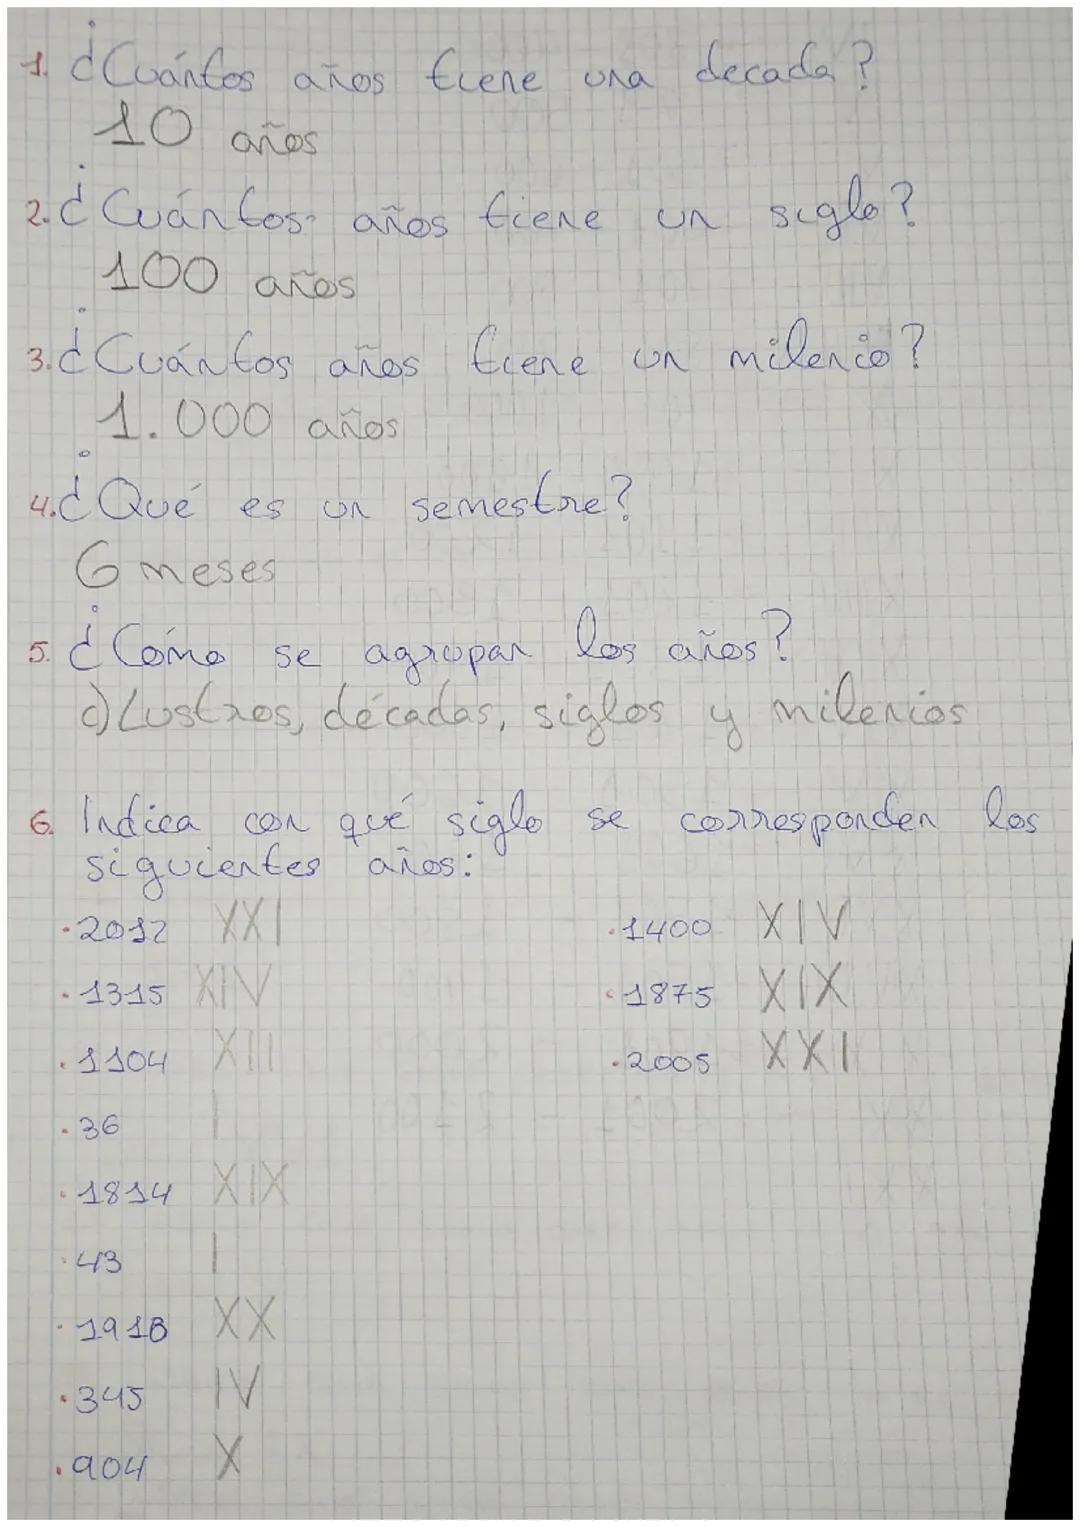 1. ¿Cuántos años tiene una decada?
10 años
2. ¿Cuántos años tiene un siglo?
100 años
3. ¿Cuántos años tiene un milenio?
1.000 años
4. ¿Qué es un semestre?
6 meses
5. ¿Cómo se agrupan los años?
c) Lustros, décadas, siglos y milenios
6. Indica con qué siglo se corresponden los
siguientes años:
· 2012 XXI
· 1315 XIV
· 1104 XII
· 36 I
· 1814 XIX
· 43 I
· 1918 XX
· 345 IV
· 904 X
· 1400 XIV
· 1875 XIX
· 2005 XXI